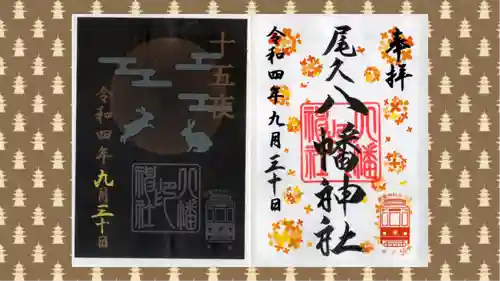 奉拝
尾久八幡神社
令和四年九月三十日
八幡神社
十五夜
令和四年九月三十日